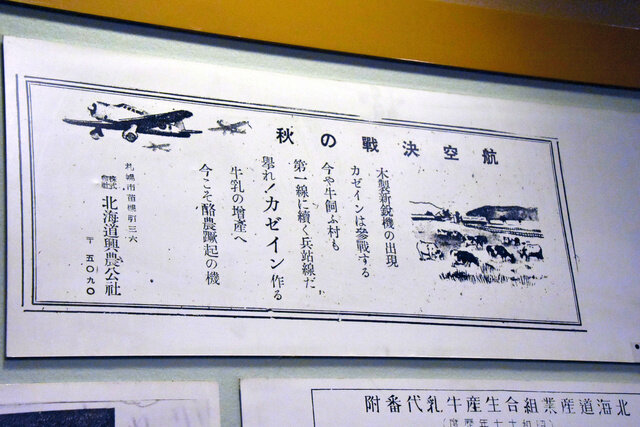 航空決戰の秋
木製新鋭機の出現
カゼインは參戰する
今や牛飼ふ村も
第一線に續く兵站線だ
擧れ!カゼイン作る
牛乳の增産へ
今こそ酪農蹶起の機
札幌市苗穂町三六
株式會社 北海道興農公社
〒五〇九〇
北海道産業組合生産牛乳代番附